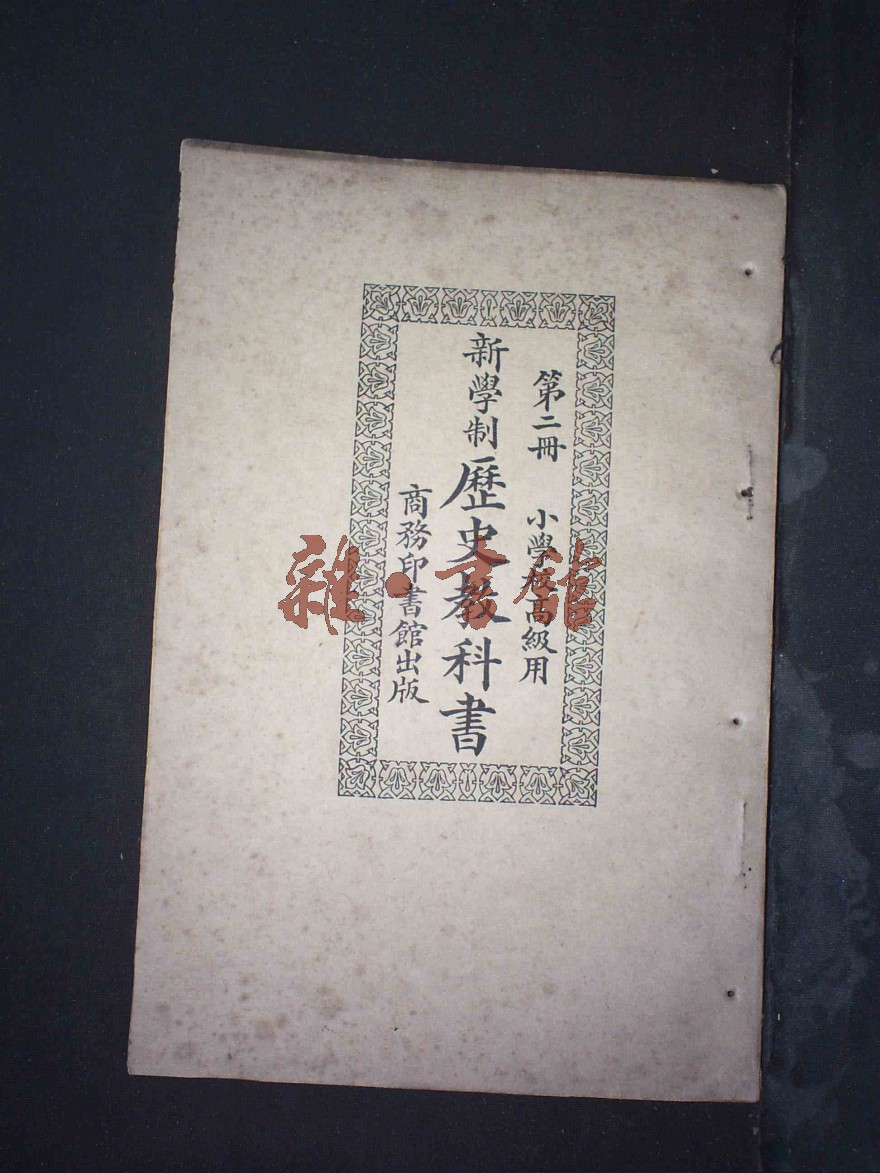 第二冊 小學校高級用
新學制歷史教科書
商務印書館出版
雜·書館